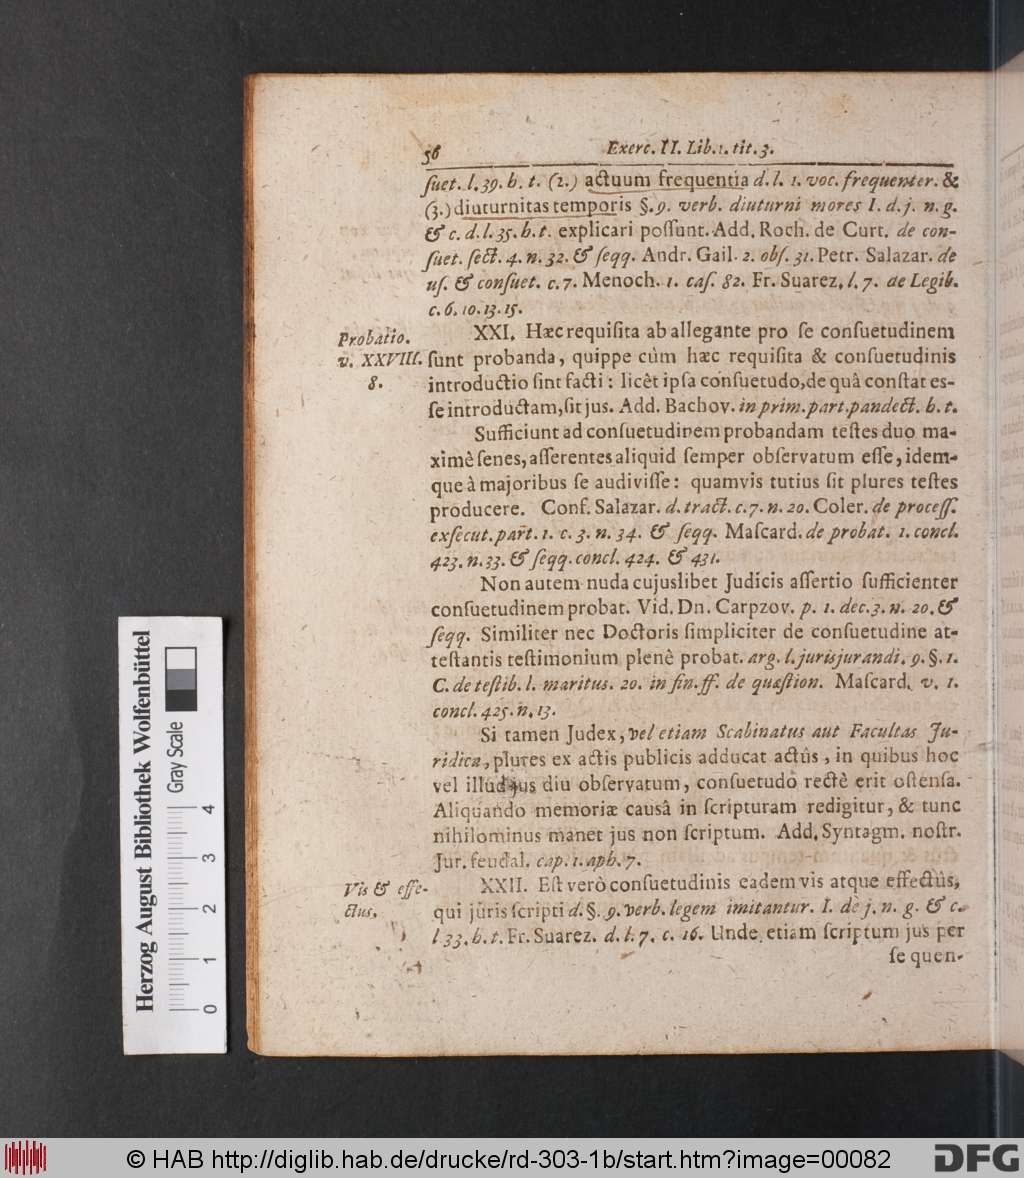 56 Exerc. II. Lib. 1. tit. 3.
ſuet. l. 39. h. t. (2.) actuum frequentia d. l. 1. voc. frequenter. &
(3.) diuturnitas temporis §. 9. verb. diuturni mores I. d. j. n. g.
& c. d. l. 35. h. t. explicari poſſunt. Add. Roch. de Curt. de con-
ſuet. ſect. 4. n. 32. & ſeqq. Andr. Gail. 2. obſ. 31. Petr. Salazar. de
uſ. & conſuet. c. 7. Menoch. 1. caſ. 82. Fr. Suarez. l. 7. de Legib.
c. 6. 10. 13. 15.
Probatio.
v. XXVIII.
8.
XXI. Hæc requiſita ab allegante pro ſe conſuetudinem
ſunt probanda, quippe cùm hæc requiſita & conſuetudinis
introductio ſint facti: licèt ipſa conſuetudo, de quâ conſtat es-
ſe introductam, ſit jus. Add. Bachov. in prim. part. pandect. h. t.
Sufficiunt ad conſuetudinem probandam teſtes duo ma-
ximè ſenes, aſſerentes aliquid ſemper obſervatum eſſe, idem-
que à majoribus ſe audiviſſe: quamvis tutius ſit plures teſtes
producere. Conf. Salazar. d. tract. c. 7. n. 20. Coler. de proceſſ.
exſecut. part. 1. c. 3. n. 34. & ſeqq. Maſcard. de probat. 1. concl.
423. n. 33. & ſeqq. concl. 424. & 431.
Non autem nuda cujuslibet Judicis aſſertio ſufficienter
conſuetudinem probat. Vid. Dn. Carpzov. p. 1. dec. 3. n. 20. &
ſeqq. Similiter nec Doctoris ſimpliciter de conſuetudine at-
teſtantis teſtimonium plenè probat. arg. l. jurisjurandi. 9. §. 1.
C. de teſtib. l. maritus. 20. in fin. ff. de quæſtion. Maſcard. v. 1.
concl. 425. n. 13.
Si tamen Judex, vel etiam Scabinatus aut Facultas Ju-
ridica, plures ex actis publicis adducat actûs, in quibus hoc
vel illud jus diu obſervatum, conſuetudo rectè erit oſtenſa.
Aliquando memoriæ causâ in ſcripturam redigitur, & tunc
nihilominus manet jus non ſcriptum. Add. Syntagm. noſtr.
Jur. feudal. cap. 1. aph. 7.
Vis & effe-
ctus.
XXII. Eſt verò conſuetudinis eadem vis atque effectûs,
qui juris ſcripti d. §. 9. verb. legem imitantur. I. de j. n. g. & c.
l 33. h. t. Fr. Suarez. d. l. 7. c. 16. Unde etiam ſcriptum jus per
ſe quen-
Herzog August Bibliothek Wolfenbüttel
Gray Scale
0 1 2 3 4
© HAB http://diglib.hab.de/drucke/rd-303-1b/start.htm?image=00082
DFG